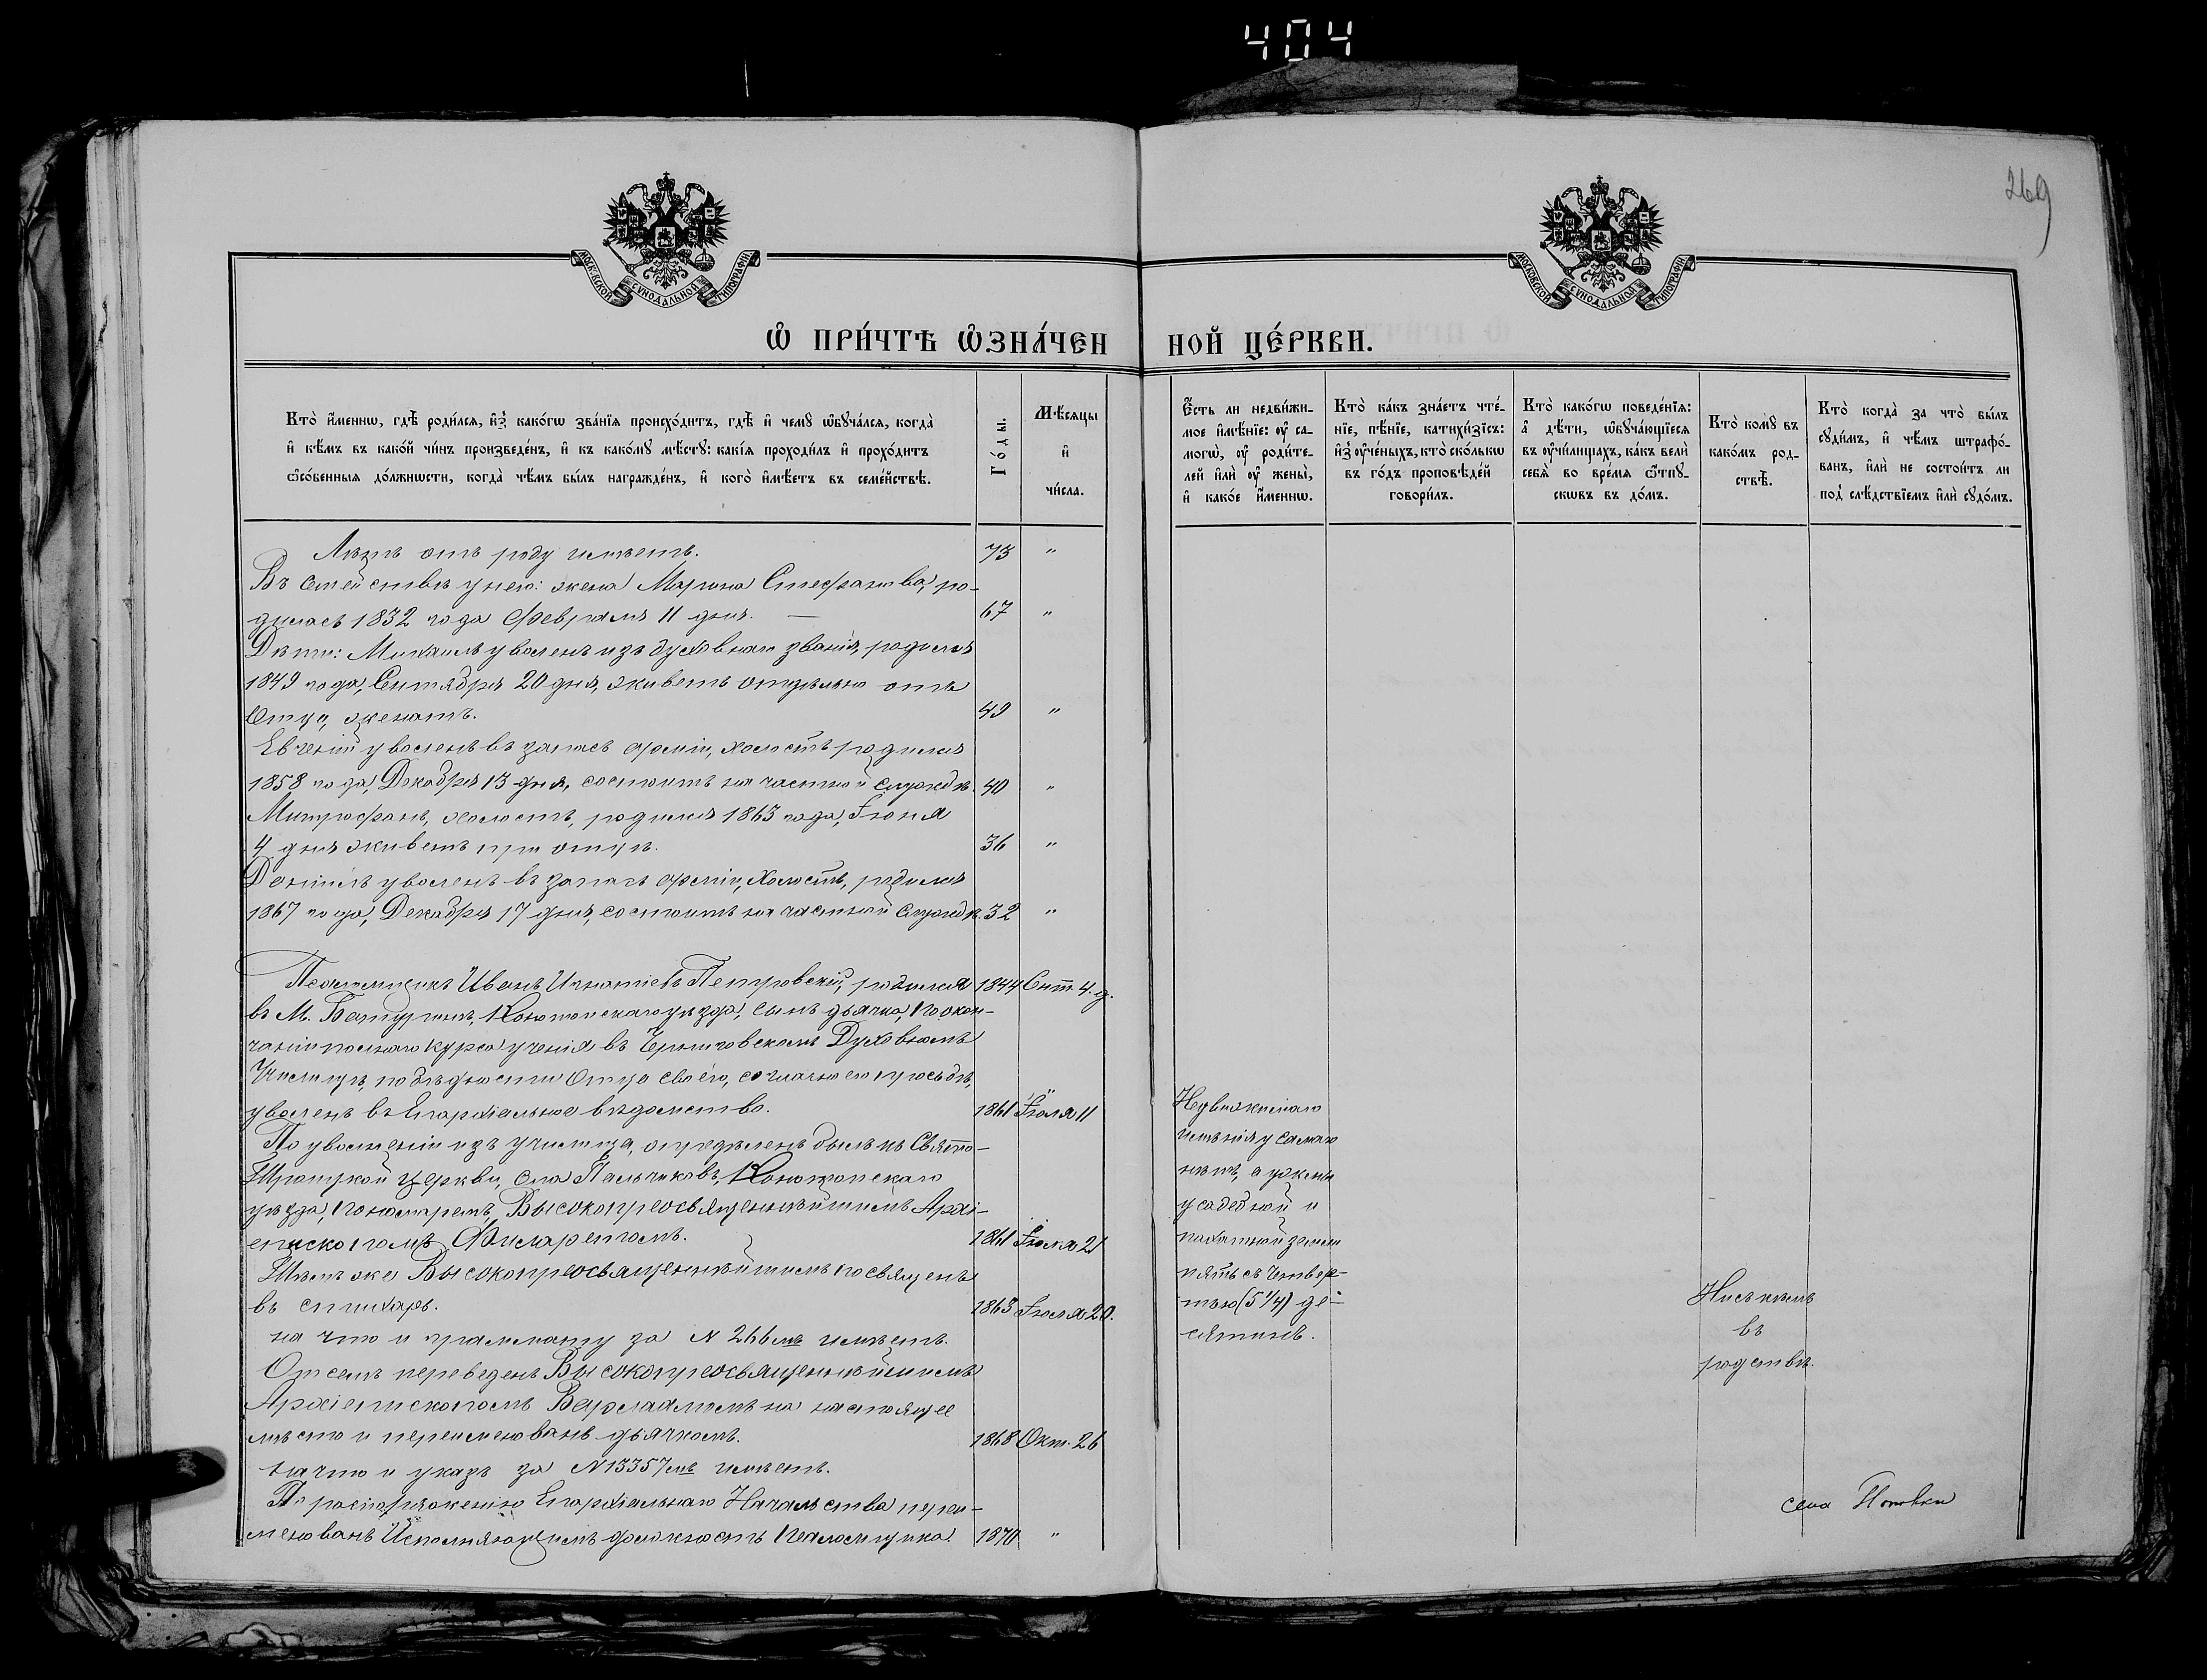 404
269
МОСКОВСКОЙ СѴНОДАЛЬНОЙ ТИПОГРАФІИ
МОСКОВСКОЙ СѴНОДАЛЬНОЙ ТИПОГРАФІИ
Ѡ ПРИ́ЧТѢ ѠЗНА́ЧЕН НОЙ ЦЕ́РКВИ.
Кто̀ и҆́меннѡ, гдѣ̀ роди́лсѧ, и҆з̾ како́гѡ зва́нїѧ происхо́дитъ, гдѣ̀ и҆ чемꙋ̀ ѡ҆бꙋча́лсѧ, когда̀
и҆ кѣ́мъ въ како́й чи́нъ произведе́нъ, и҆ къ како́мꙋ мѣ́стꙋ: какі́ѧ проходи́лъ и҆ прохо́дитъ
ѻ҆со́бенныѧ до́лжнѡсти, когда̀ чѣ́мъ бы́лъ награжде́нъ, и҆ кого̀ и҆мѣ́етъ въ семе́йствѣ.
Го́ды.
Мѣ́сѧцы
и҆
чи́сла.
Є҆́сть ли недви́жи-
мое и҆мѣ́нїе: оу҆ са-
могѡ̀, оу҆ роди́те-
лей и҆лѝ оу҆ жены̀,
и҆ како́е и҆́меннѡ.
Кто̀ ка́къ зна́етъ чте́-
нїе, пѣ́нїе, катихи́зїсъ:
и҆з̾ оу҆че́ныхъ, кто̀ ско́лькѡ
въ го́дъ проповѣ́дей
говори́лъ.
Кто̀ како́гѡ поведе́нїѧ:
а҆ дѣ́ти, ѡ҆бꙋча́ющїесѧ
въ оу҆чи́лищахъ, ка́къ велѝ
себѧ̀ во вре́мѧ ѿпꙋ-
скѡвъ въ до́мъ.
Кто̀ комꙋ̀ въ
како́мъ род-
ствѣ̀.
Кто̀ когда̀ за что̀ бы́лъ
сꙋди́мъ, и҆ чѣ́мъ штрафо́-
ванъ, и҆лѝ не состои́тъ ли
под̾ слѣ́дствїемъ и҆лѝ сꙋдо́мъ.
Лѣтъ отъ роду имѣетъ. 73 "
Въ семействѣ у него: жена Марина Стефанова, ро-
дилась 1832 года Февраля 11 дня. — 67 "
Дѣти: Михаилъ уволенъ изъ духовнаго званія, родился
1849 года, Сентября 20 дня, живетъ отдѣльно отъ
отца, женатъ. 49 "
Евгеній уволенъ въ запасъ арміи, холостъ родился
1858 года, Декабря 13 дня, состоитъ на частной службѣ. 40 "
Митрофанъ, холостъ, родился 1863 года, Іюня
4 дня живетъ при отцѣ. 36 "
Даніилъ уволенъ въ запасъ арміи, холостъ, родился
1867 года, Декабря 17 дня, состоитъ на частной службѣ. 32 "
Псаломщикъ Иванъ Игнатіевъ Петровскій, родился 1844 Снт. 4. д.
въ М. Батуринѣ, Конотопскаго уѣзда, сынъ дьячка, по окон-
чаніи полнаго курса ученія въ Черниговскомъ Духовномъ
Училищѣ, по бѣдности отца своего, согласно его просьбѣ,
уволенъ въ Епархіальное вѣдомство. 1861 Іюля 11
По уволненіи изъ училища, опредѣленъ былъ къ Свято-
Троицкой церкви, села Пальчиковъ, Конотопскаго
уѣзда, пономаремъ, Высокопреосвященнѣйшимъ Архі-
епископомъ Филаретомъ. 1861 Іюля 21
Имъ же Высокопреосвященнѣйшимъ посвященъ
въ стихарь. 1863 Іюля 20.
на что и грammоту за N 266мъ имѣетъ.
Отселѣ переведенъ Высокопреосвященнѣйшимъ
Архіепископомъ Варлаамомъ на настоящее
мѣсто и переименованъ дьячкомъ. 1868 Окт. 26
на что и указъ за N 13357мъ имѣетъ.
По распоряженію Епархіальнаго Начальства переи-
менованъ Исполняющимъ должность псаломщика. 1870 "
Недвижимаго
имѣнія у самаго
нѣтъ, а у жены
усадебной и
пахатной земли
пять съ четвер-
тью (5 1/4) де-
сятинъ.
Ни съ кѣмъ
въ
родствѣ.
села Поповки